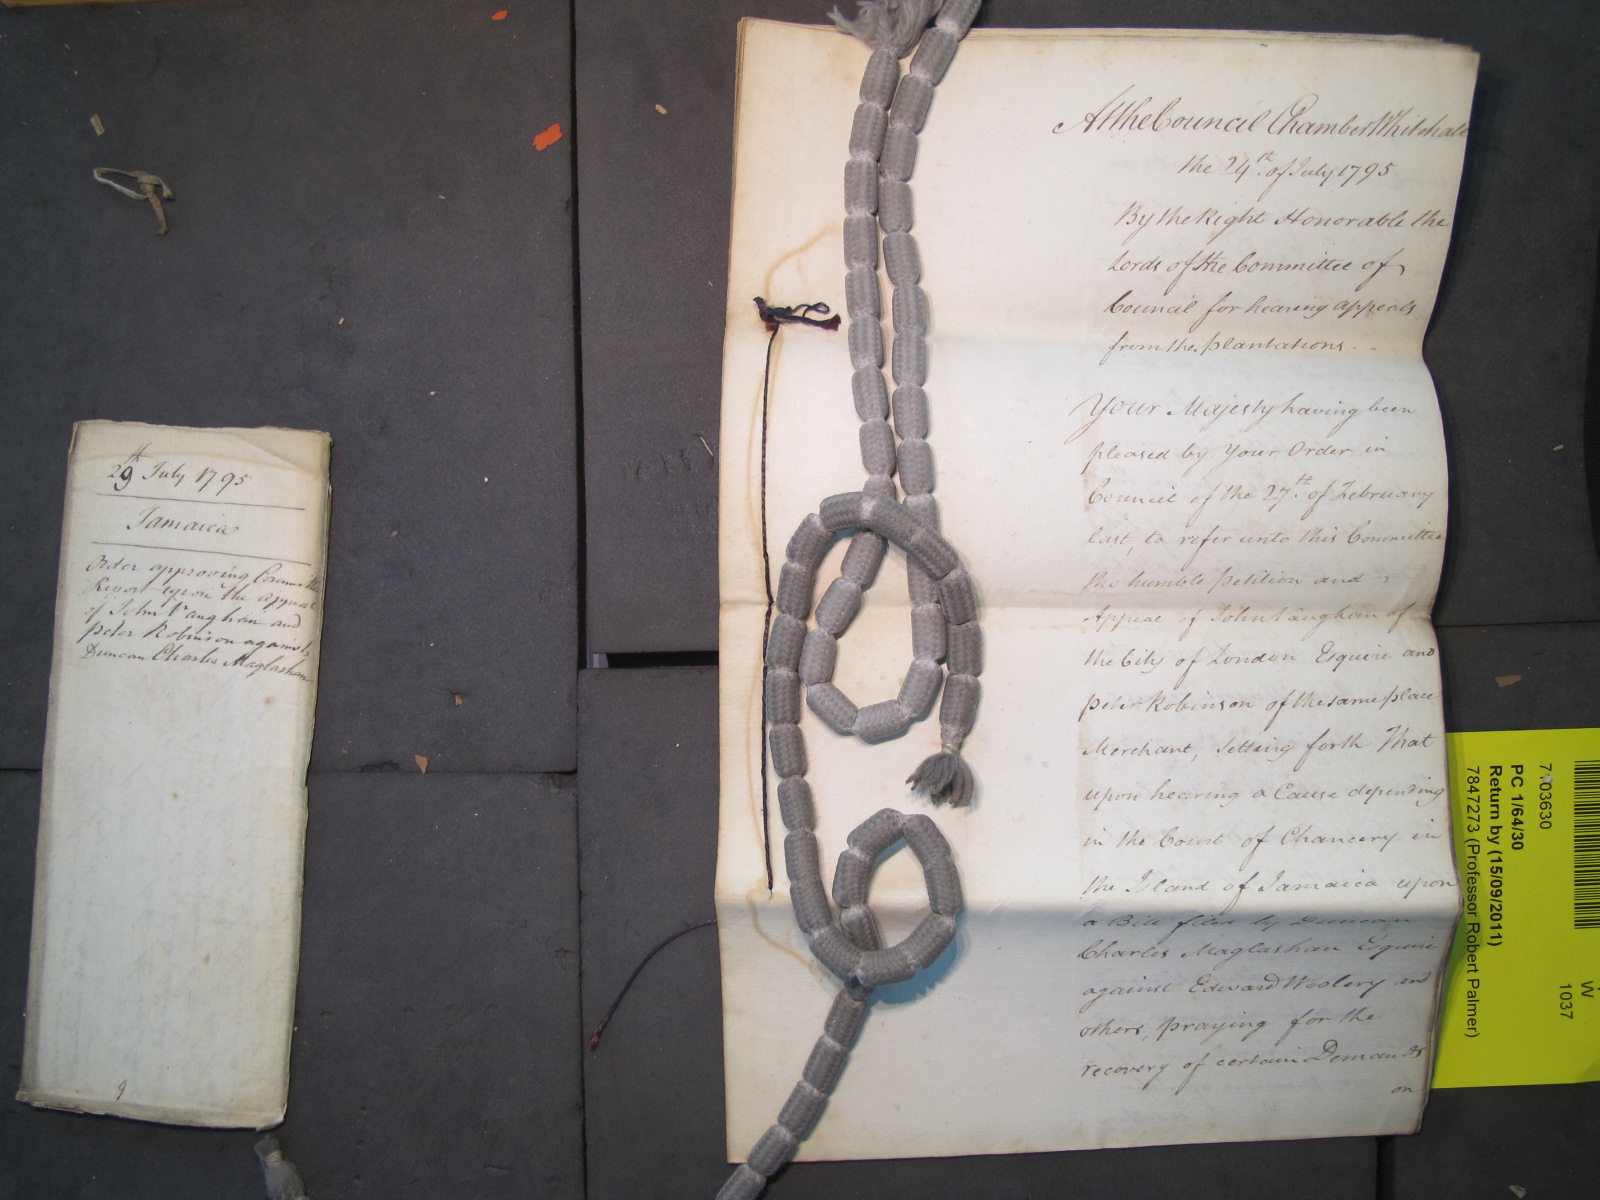 29th July 1795
Jamaica
Order approving Committee
Report upon the appeal
of John Vaughan and
Peter Robinson against
Duncan Charles Maglashan
9
At the Council Chamber Whitehall
the 24th of July 1795
By the Right Honorable the
Lords of the Committee of
Council for hearing appeals
from the plantations. -
Your Majesty having been
pleased by Your Order in
Council of the 27th of February
last, to refer unto this Committee
the humble petition and
Appeal of John Vaughan of
the City of London Esquire and
Peter Robinson of the same place
Merchant, setting forth That
upon hearing a Cause depending
in the Court of Chancery in
the Island of Jamaica upon
a Bill filed by Duncan
Charles Maglashan Esquire
against Edward Woolery and
others, praying for the
recovery of certain Demands
on
W
1037
7103630
PC 1/64/30
Return by (15/09/2011)
7847273 (Professor Robert Palmer)